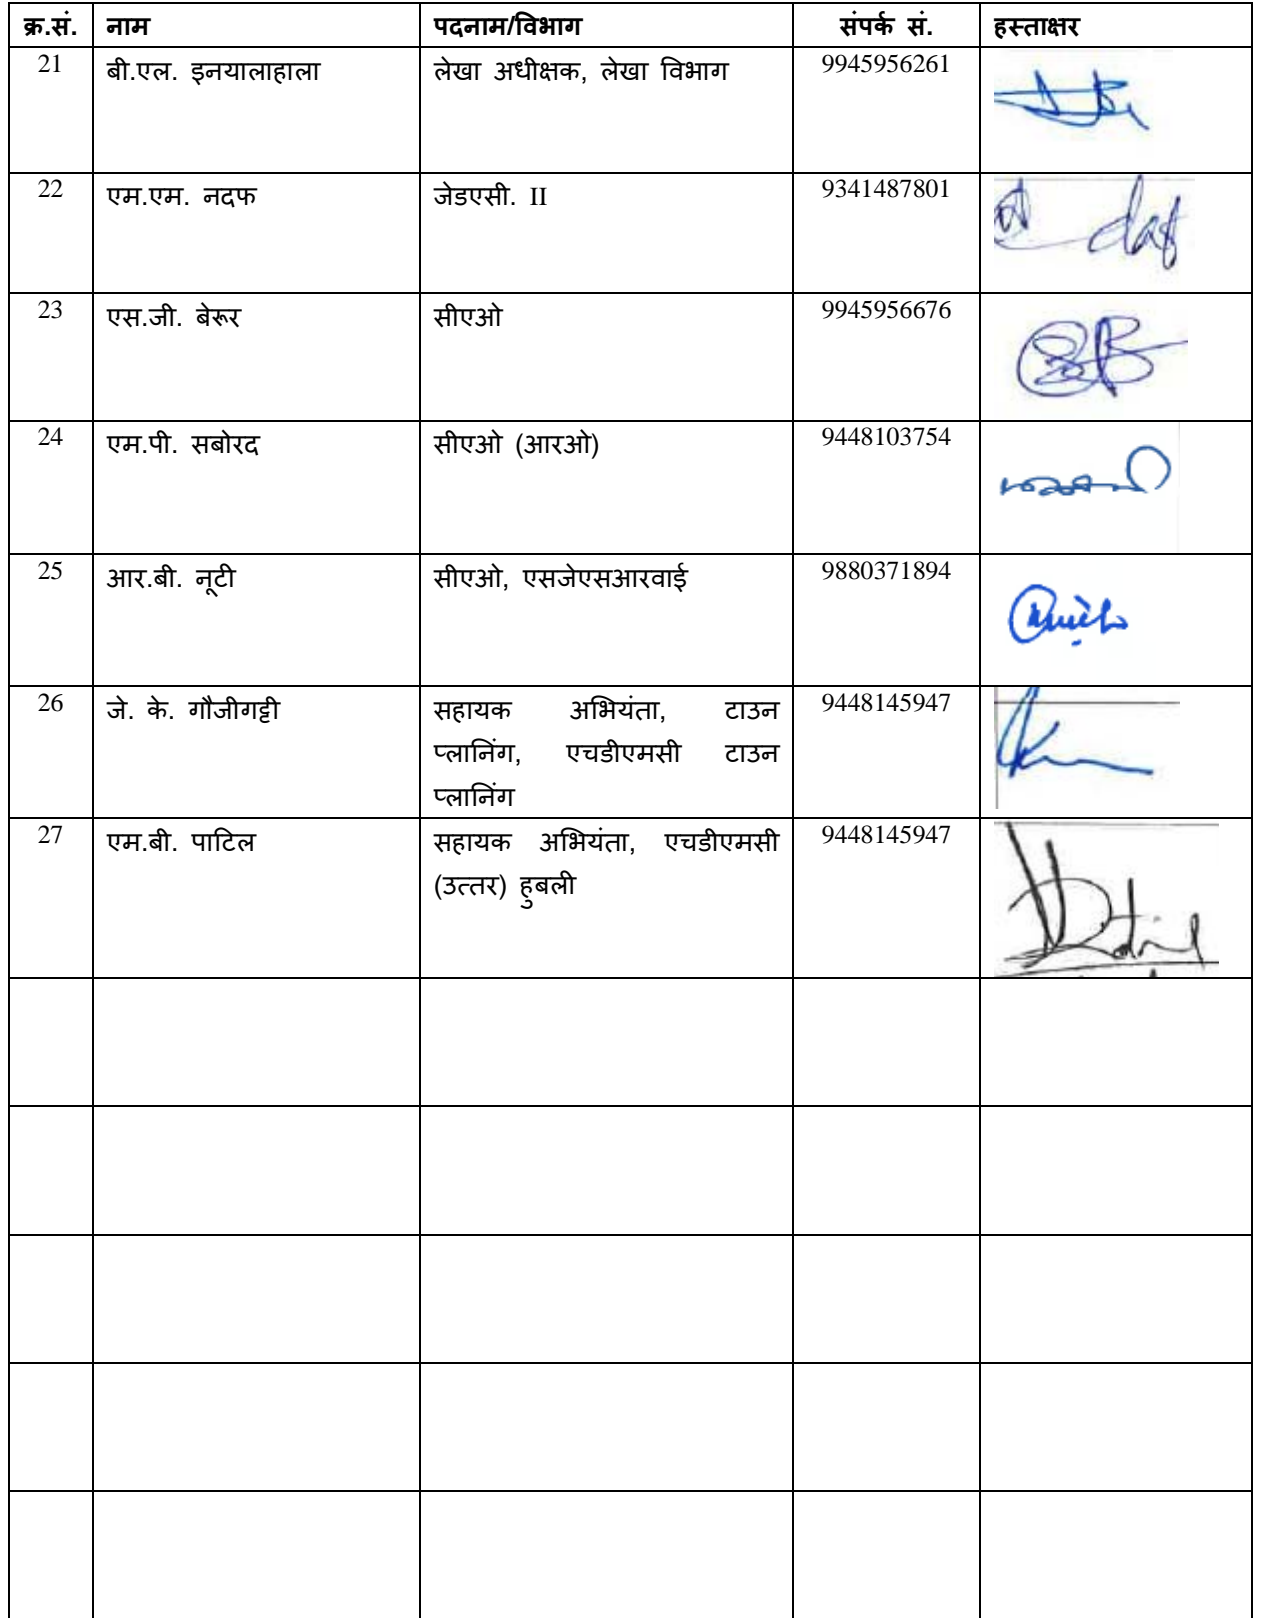 क्र.सं. नाम पदनाम/विभाग संपर्क सं. हस्ताक्षर
21 बी.एल. इनयालाहाला लेखा अधीक्षक, लेखा विभाग 9945956261
22 एम.एम. नदफ जेडएसी. II 9341487801
23 एस.जी. बेरूर सीएओ 9945956676
24 एम.पी. सबोरद सीएओ (आरओ) 9448103754
25 आर.बी. नूटी सीएओ, एसजेएसआरवाई 9880371894
26 जे. के. गौजीगट्टी सहायक अभियंता, टाउन 9448145947
प्लानिंग, एचडीएमसी टाउन
प्लानिंग
27 एम.बी. पाटिल सहायक अभियंता, एचडीएमसी 9448145947
(उत्तर) हुबली